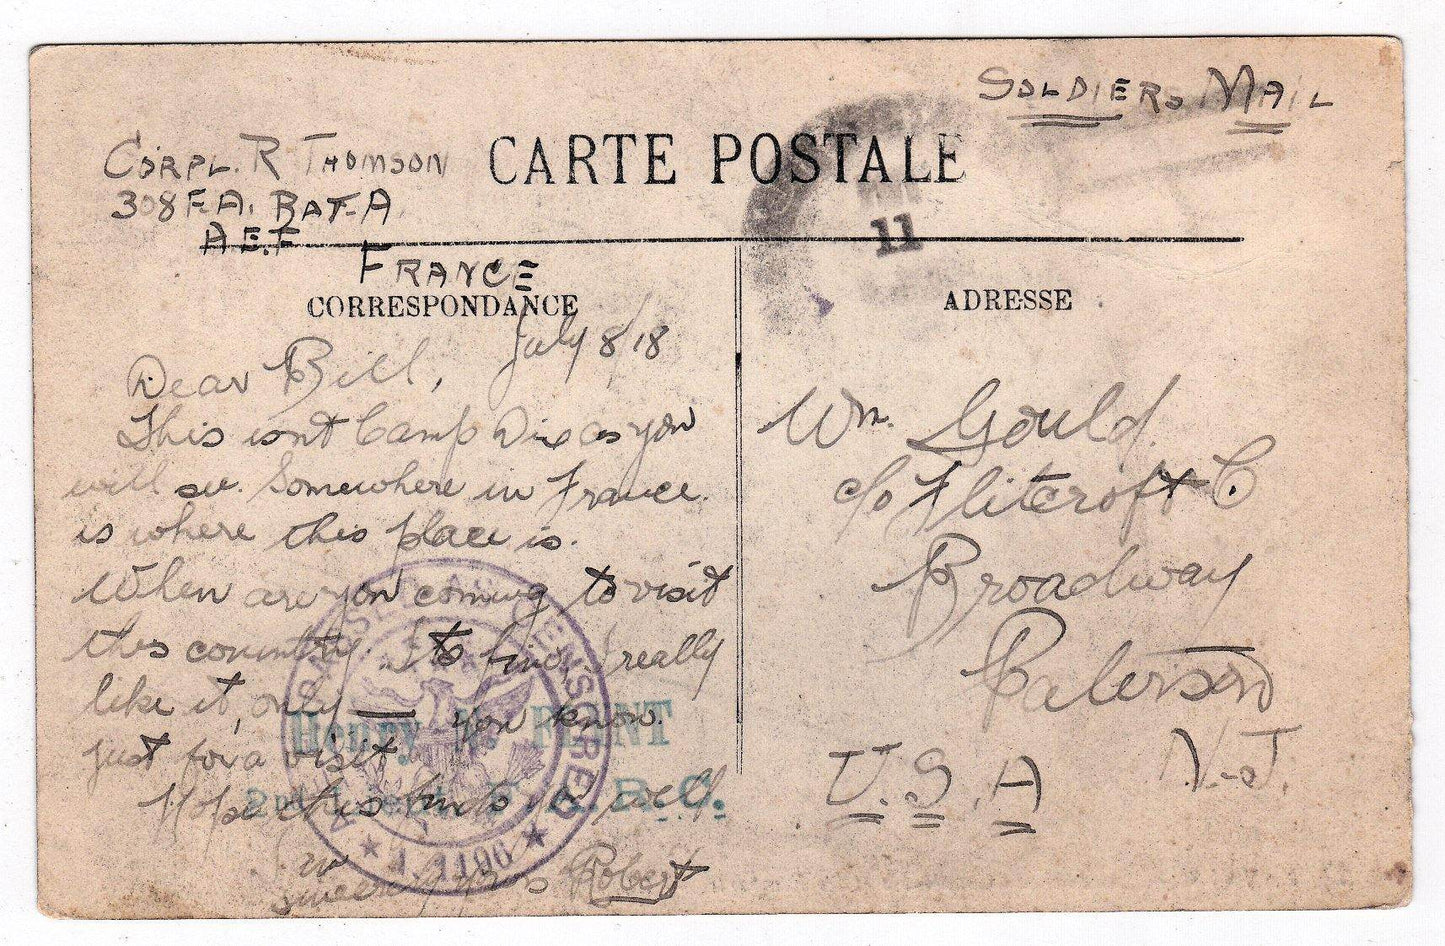 SOLDIERS MAIL
CORPL. R THOMSON
308 F.A. BAT-A
A.E.F
FRANCE
CARTE POSTALE
11
CORRESPONDANCE
ADRESSE
July 8/18
Dear Bill,
This isnt Camp Dix as you
will see. Somewhere in France.
is where this place is.
When are you coming to visit
this country. Its fine, I really
like it, only — you know.
just for a visit.
Hope this finds you well
sincerely yours Robert
Wm. Gould
c/o Flitcroft C
Broadway
Paterson
N-J.
U.S.A
Henry N. FLINT
2nd Lieut. F. A. R. C.
PASSED AS CENSORED
A.E.F.